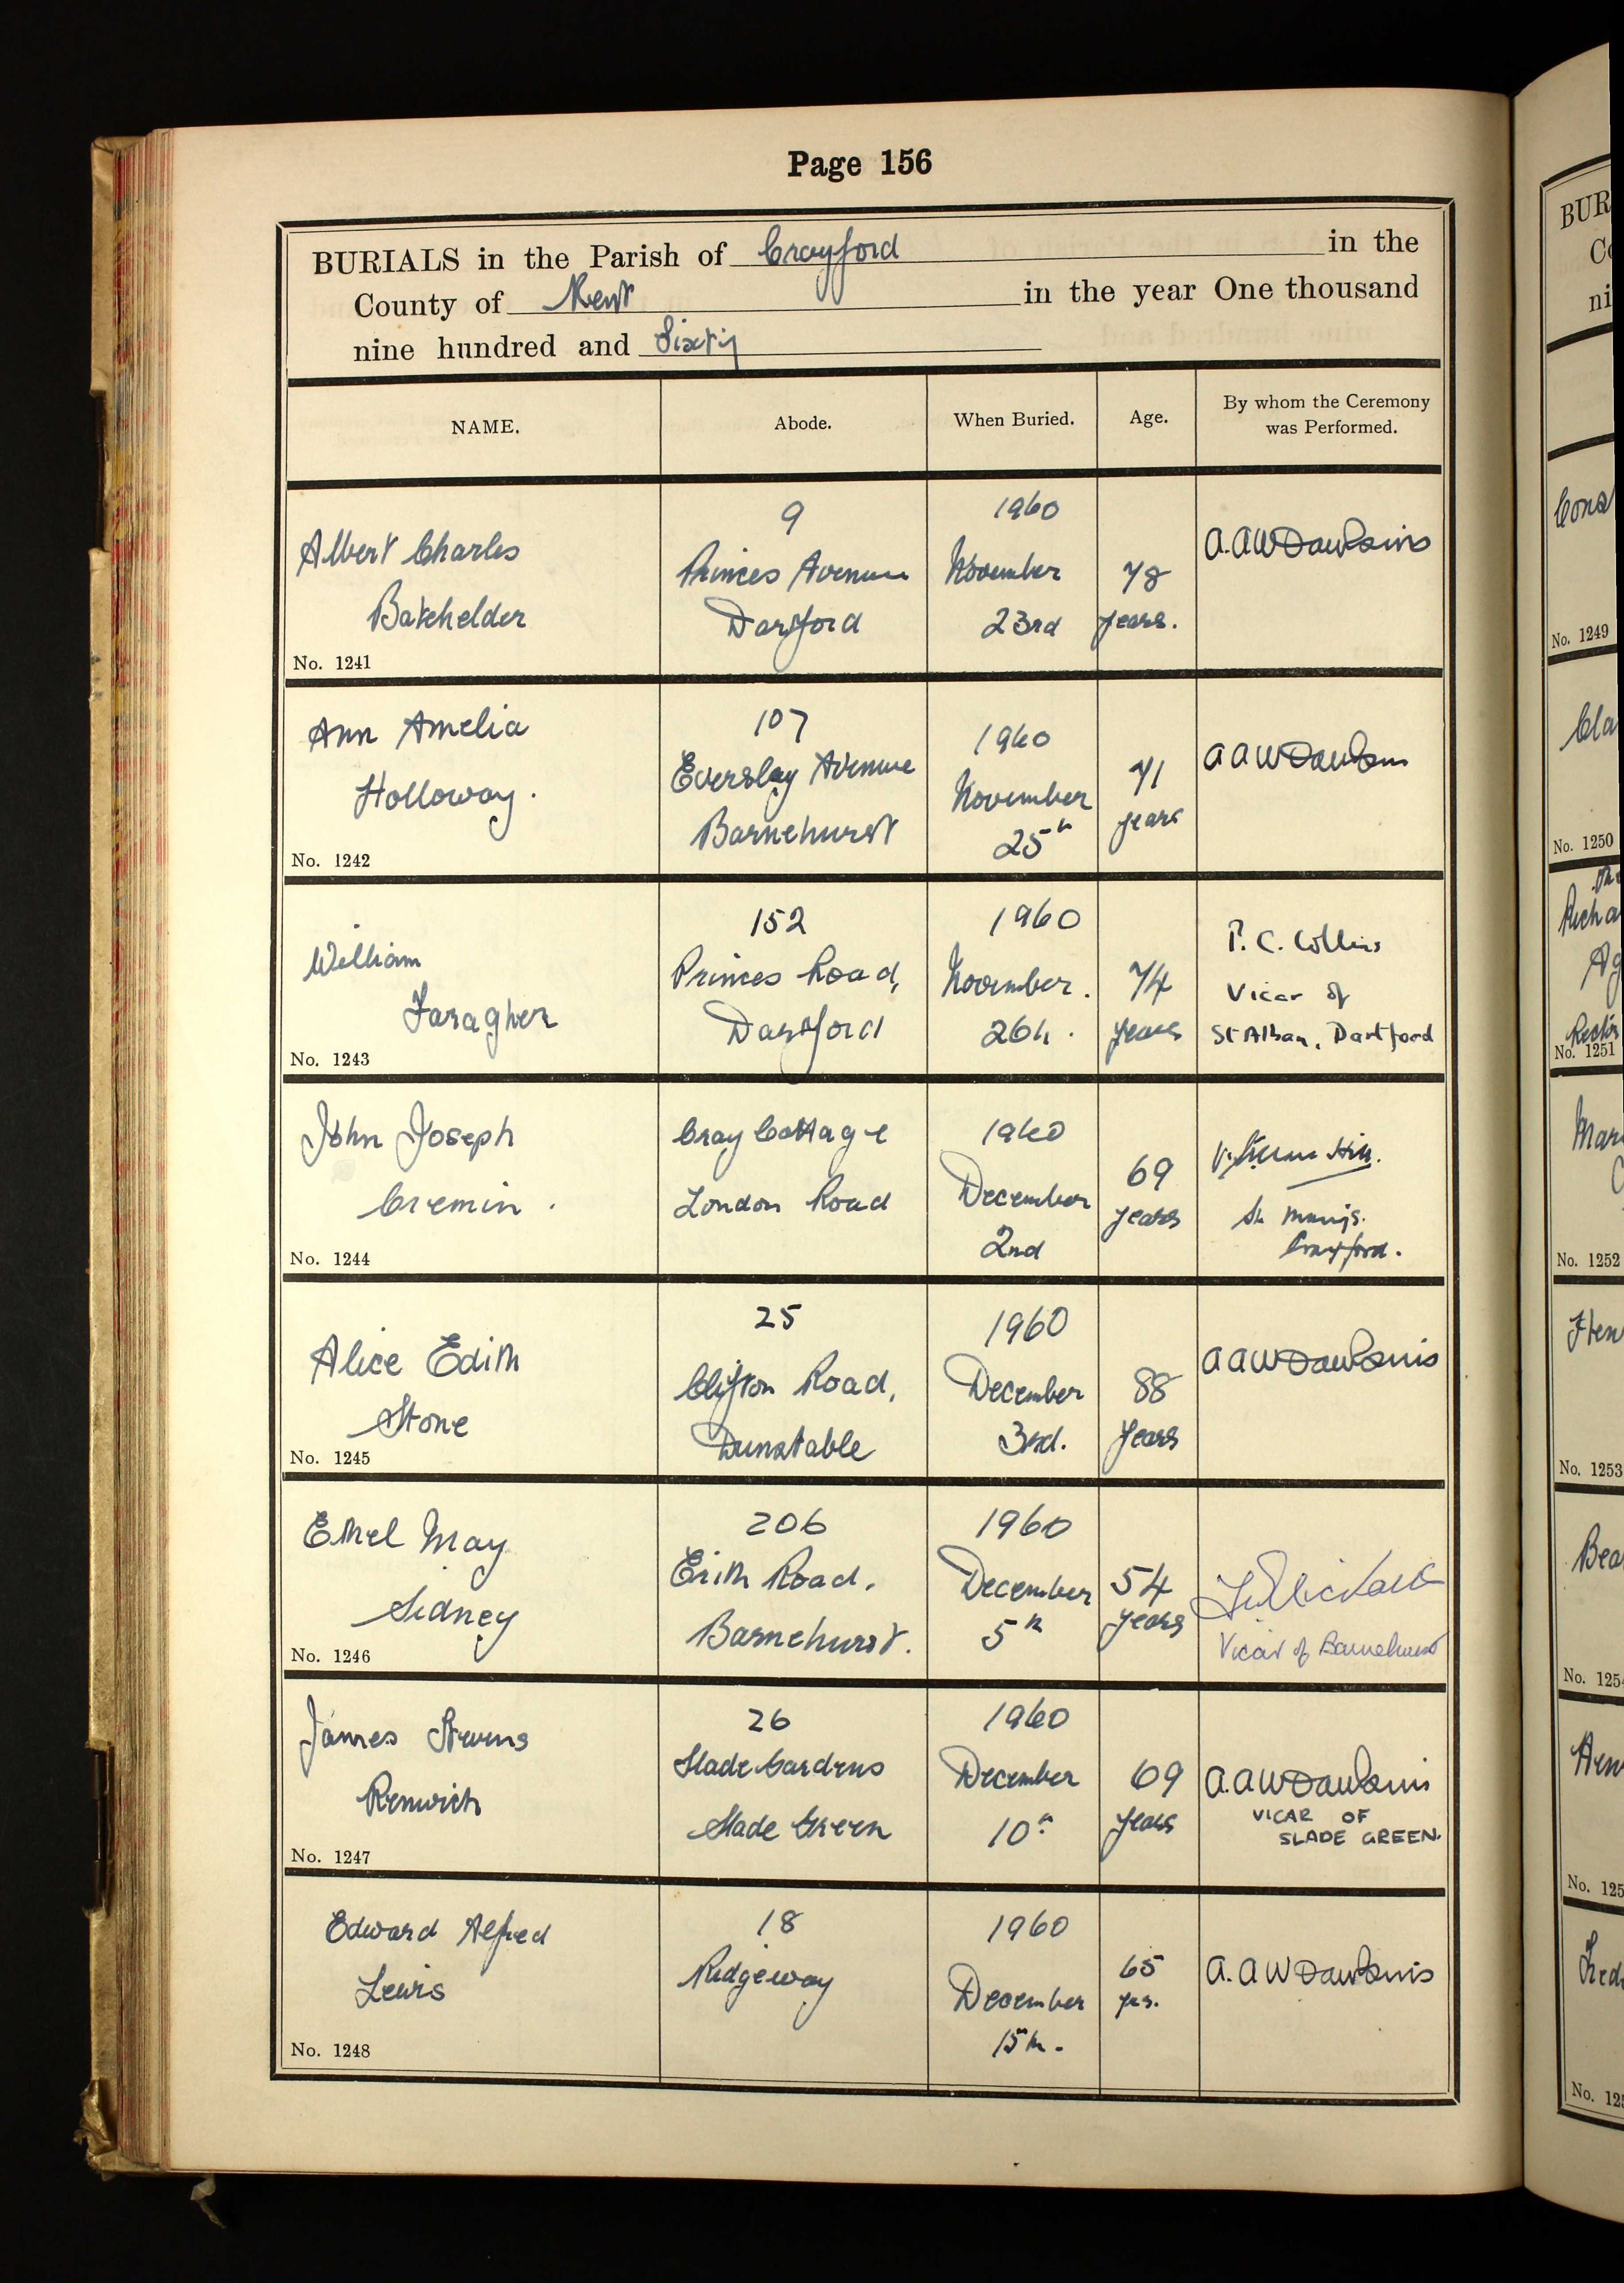 Page 156
BURIALS in the Parish of Crayford in the
County of Kent in the year One thousand
nine hundred and Sixty
NAME.
Abode.
When Buried.
Age.
By whom the Ceremony
was Performed.
Albert Charles
Batchelder
No. 1241
9
Princes Avenue
Dartford
1960
November
23rd
78
years.
A. A W Dawkins
Ann Amelia
Holloway.
No. 1242
107
Eversley Avenue
Barnehurst
1960
November
25th
71
years
A A W Dawkins
William
Faragher
No. 1243
152
Princes Road,
Dartford
1960
November.
26th.
74
years
P. C. Collins
Vicar of
St Alban, Dartford
John Joseph
Cremin.
No. 1244
Cray Cottage
London Road
1960
December
2nd
69
years
Hill.
St Mary's.
Crayford.
Alice Edith
Stone
No. 1245
25
Clifton Road,
Dunstable
1960
December
3rd.
88
years
A A W Dawkins
Ethel May
Sidney
No. 1246
206
Erith Road.
Barnehurst.
1960
December
5th
54
years
Vicar of Barnehurst
James Stevens
Renwick
No. 1247
26
Slade Gardens
Slade Green
1960
December
10th
69
years
A. A W Dawkins
VICAR OF
SLADE GREEN.
Edward Alfred
Lewis
No. 1248
18
Ridgeway
1960
December
15th.
65
yrs.
A. A W Dawkins
BUR
Co
ni
No. 1249
Cla
No. 1250
Richa
Ag
Rector
No. 1251
Mar
No. 1252
Hen
No. 1253
Bea
No. 125
No. 125
Fred
No. 12